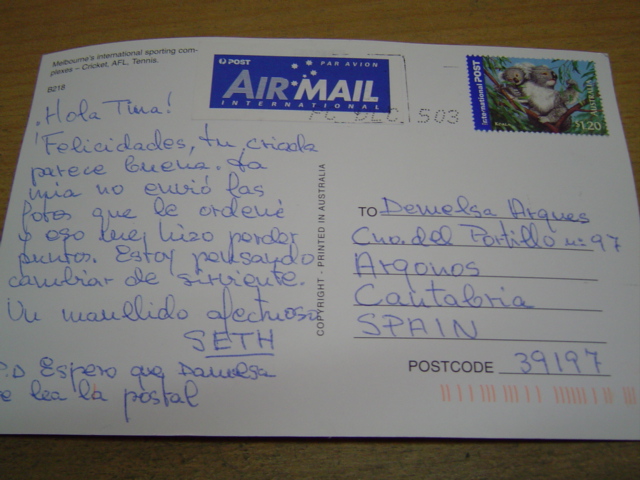 Melbourne's international sporting com-
plexes – Cricket, AFL, Tennis.
B218
POST
PAR AVION
AIR MAIL
INTERNATIONAL
DEC 503
International POST
AUSTRALIA
$1.20
¡Hola Tina!
¡Felicidades, tu criada
parece buena. La
mia no envió las
fotos que le ordené
y eso me hizo perder
puntos. Estoy pensando
cambiar de sirviente.
Un maullido afectuoso
SETH
P.D Espero que Demelsa
te lea la postal
COPYRIGHT · PRINTED IN AUSTRALIA
TO Demelsa Arques
Cno. del Portillo nº 97
Argoños
Cantabria
SPAIN
POSTCODE 39197